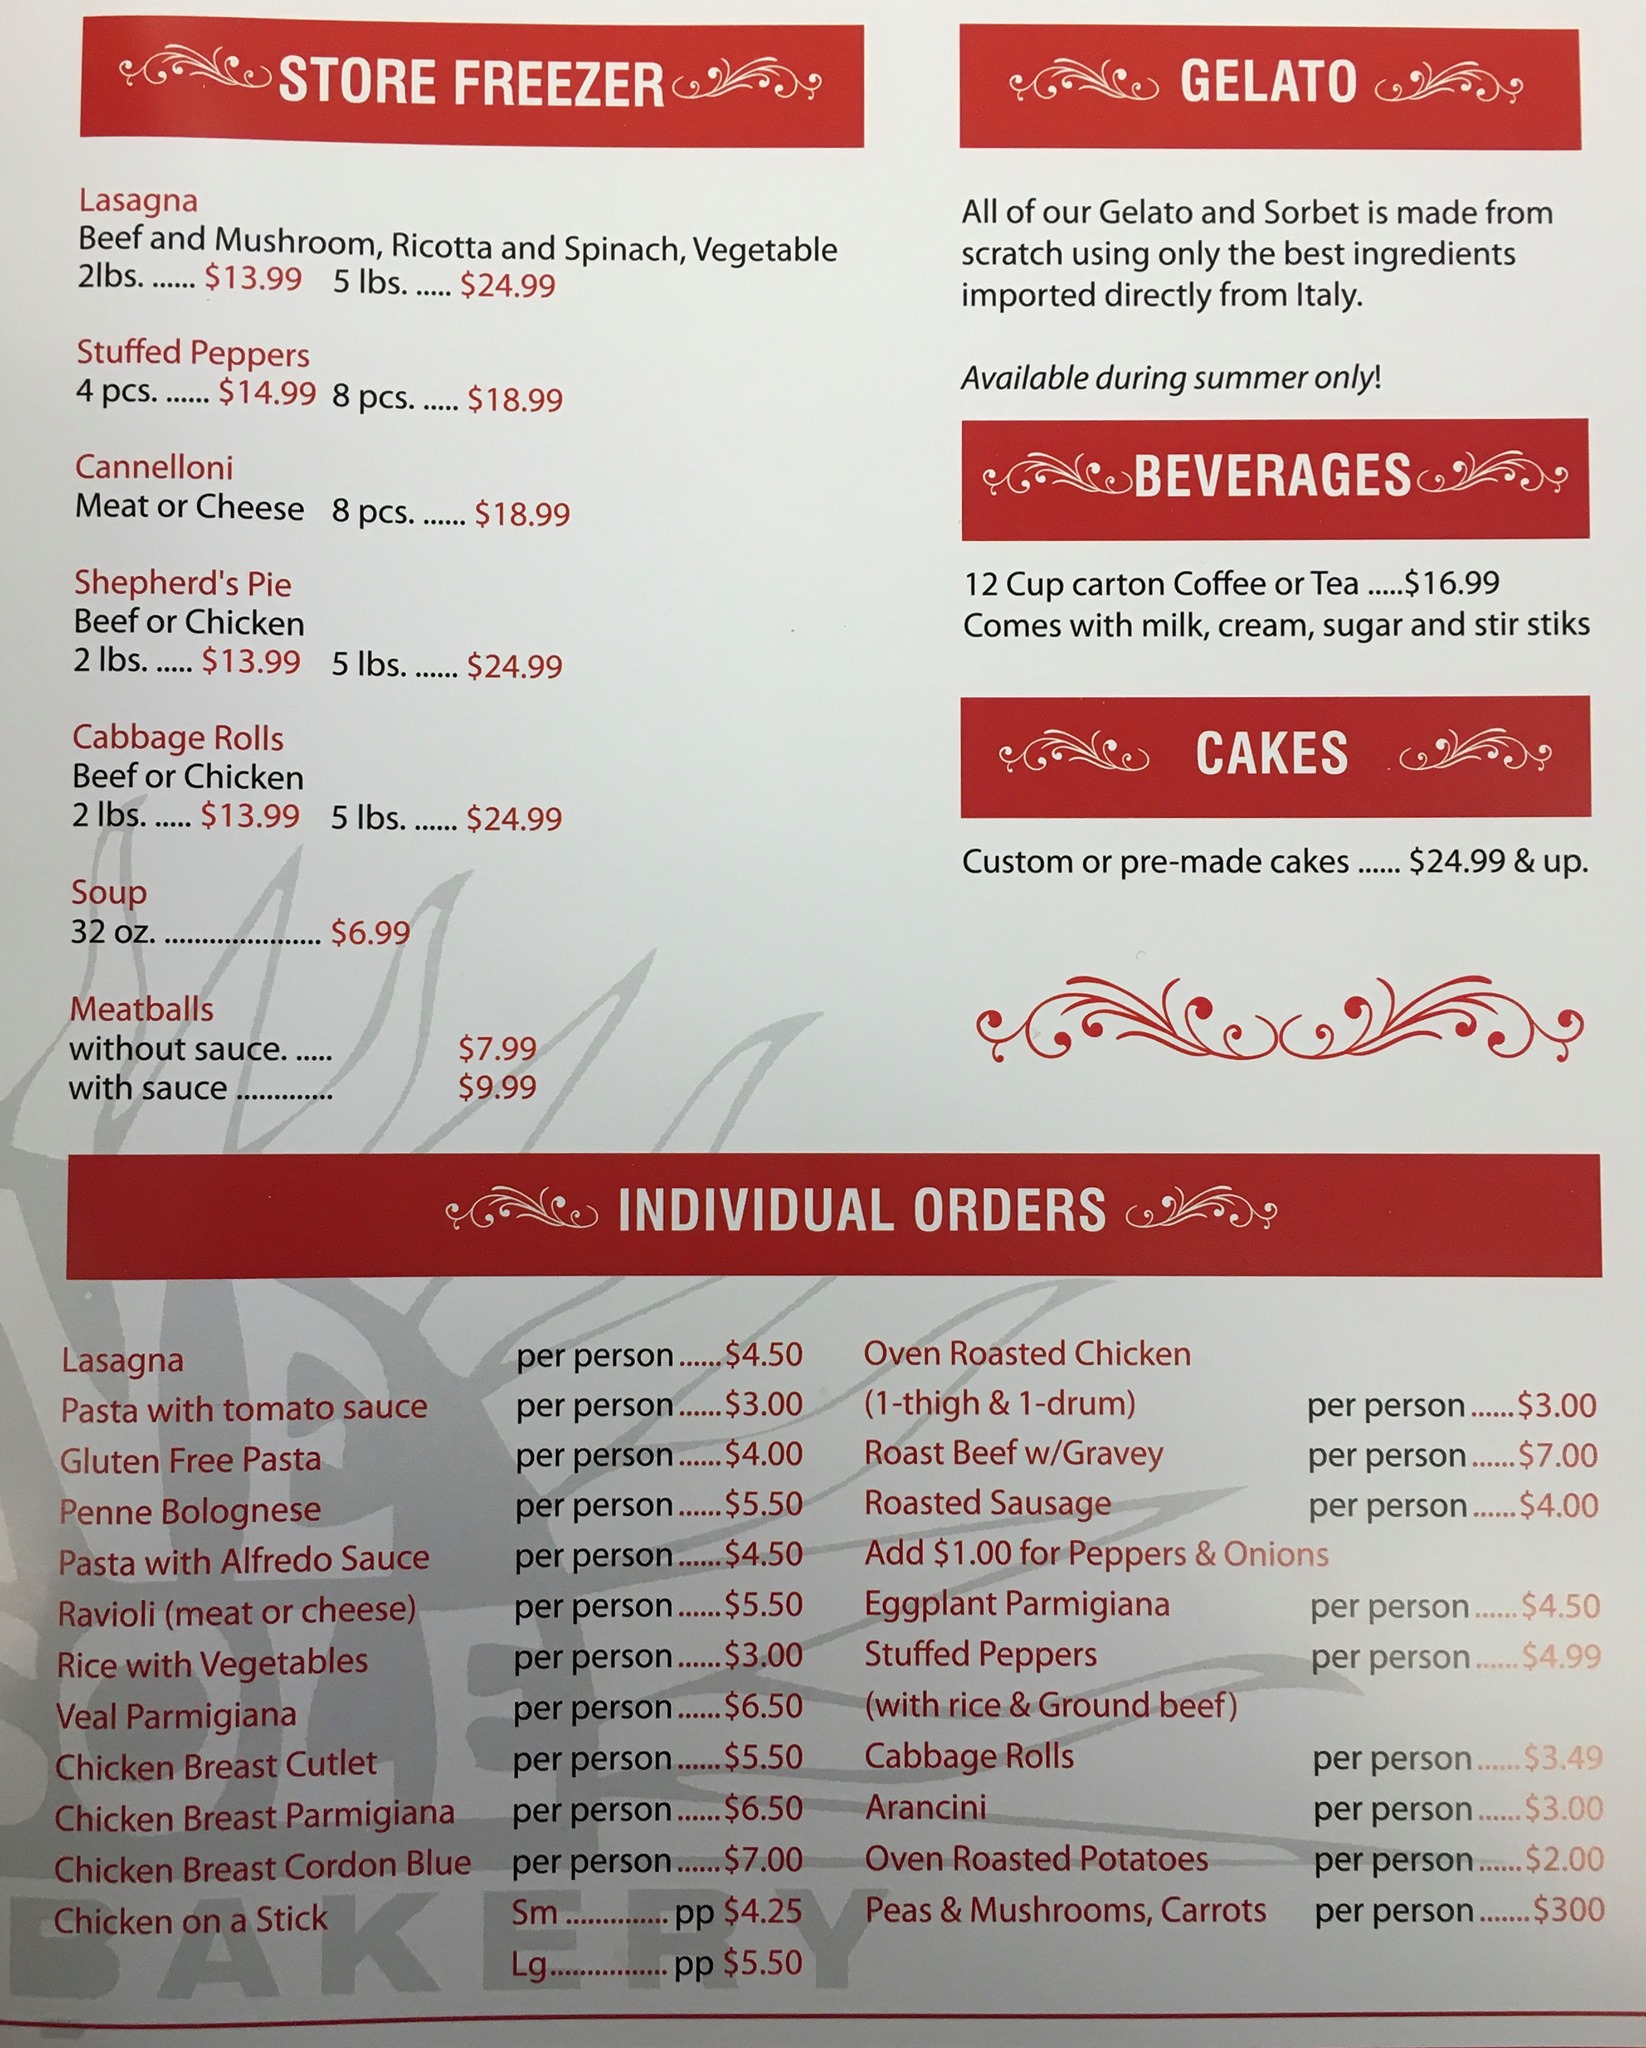 STORE FREEZER
Lasagna
Beef and Mushroom, Ricotta and Spinach, Vegetable
2lbs. ...... $13.99 5 lbs. ..... $24.99
Stuffed Peppers
4 pcs. ...... $14.99 8 pcs. ..... $18.99
Cannelloni
Meat or Cheese 8 pcs. ...... $18.99
Shepherd's Pie
Beef or Chicken
2 lbs. ..... $13.99 5 lbs. ...... $24.99
Cabbage Rolls
Beef or Chicken
2 lbs. ..... $13.99 5 lbs. ...... $24.99
Soup
32 oz. ..................... $6.99
Meatballs
without sauce. ..... $7.99
with sauce ............. $9.99
GELATO
All of our Gelato and Sorbet is made from
scratch using only the best ingredients
imported directly from Italy.
Available during summer only!
BEVERAGES
12 Cup carton Coffee or Tea .....$16.99
Comes with milk, cream, sugar and stir stiks
CAKES
Custom or pre-made cakes ...... $24.99 & up.
INDIVIDUAL ORDERS
Lasagna per person......$4.50
Pasta with tomato sauce per person......$3.00
Gluten Free Pasta per person......$4.00
Penne Bolognese per person......$5.50
Pasta with Alfredo Sauce per person......$4.50
Ravioli (meat or cheese) per person......$5.50
Rice with Vegetables per person......$3.00
Veal Parmigiana per person......$6.50
Chicken Breast Cutlet per person......$5.50
Chicken Breast Parmigiana per person......$6.50
Chicken Breast Cordon Blue per person......$7.00
Chicken on a Stick Sm .............. pp $4.25
Lg................ pp $5.50
Oven Roasted Chicken
(1-thigh & 1-drum) per person......$3.00
Roast Beef w/Gravey per person......$7.00
Roasted Sausage per person......$4.00
Add $1.00 for Peppers & Onions
Eggplant Parmigiana per person......$4.50
Stuffed Peppers per person......$4.99
(with rice & Ground beef)
Cabbage Rolls per person......$3.49
Arancini per person......$3.00
Oven Roasted Potatoes per person......$2.00
Peas & Mushrooms, Carrots per person.......$300
BAKERY